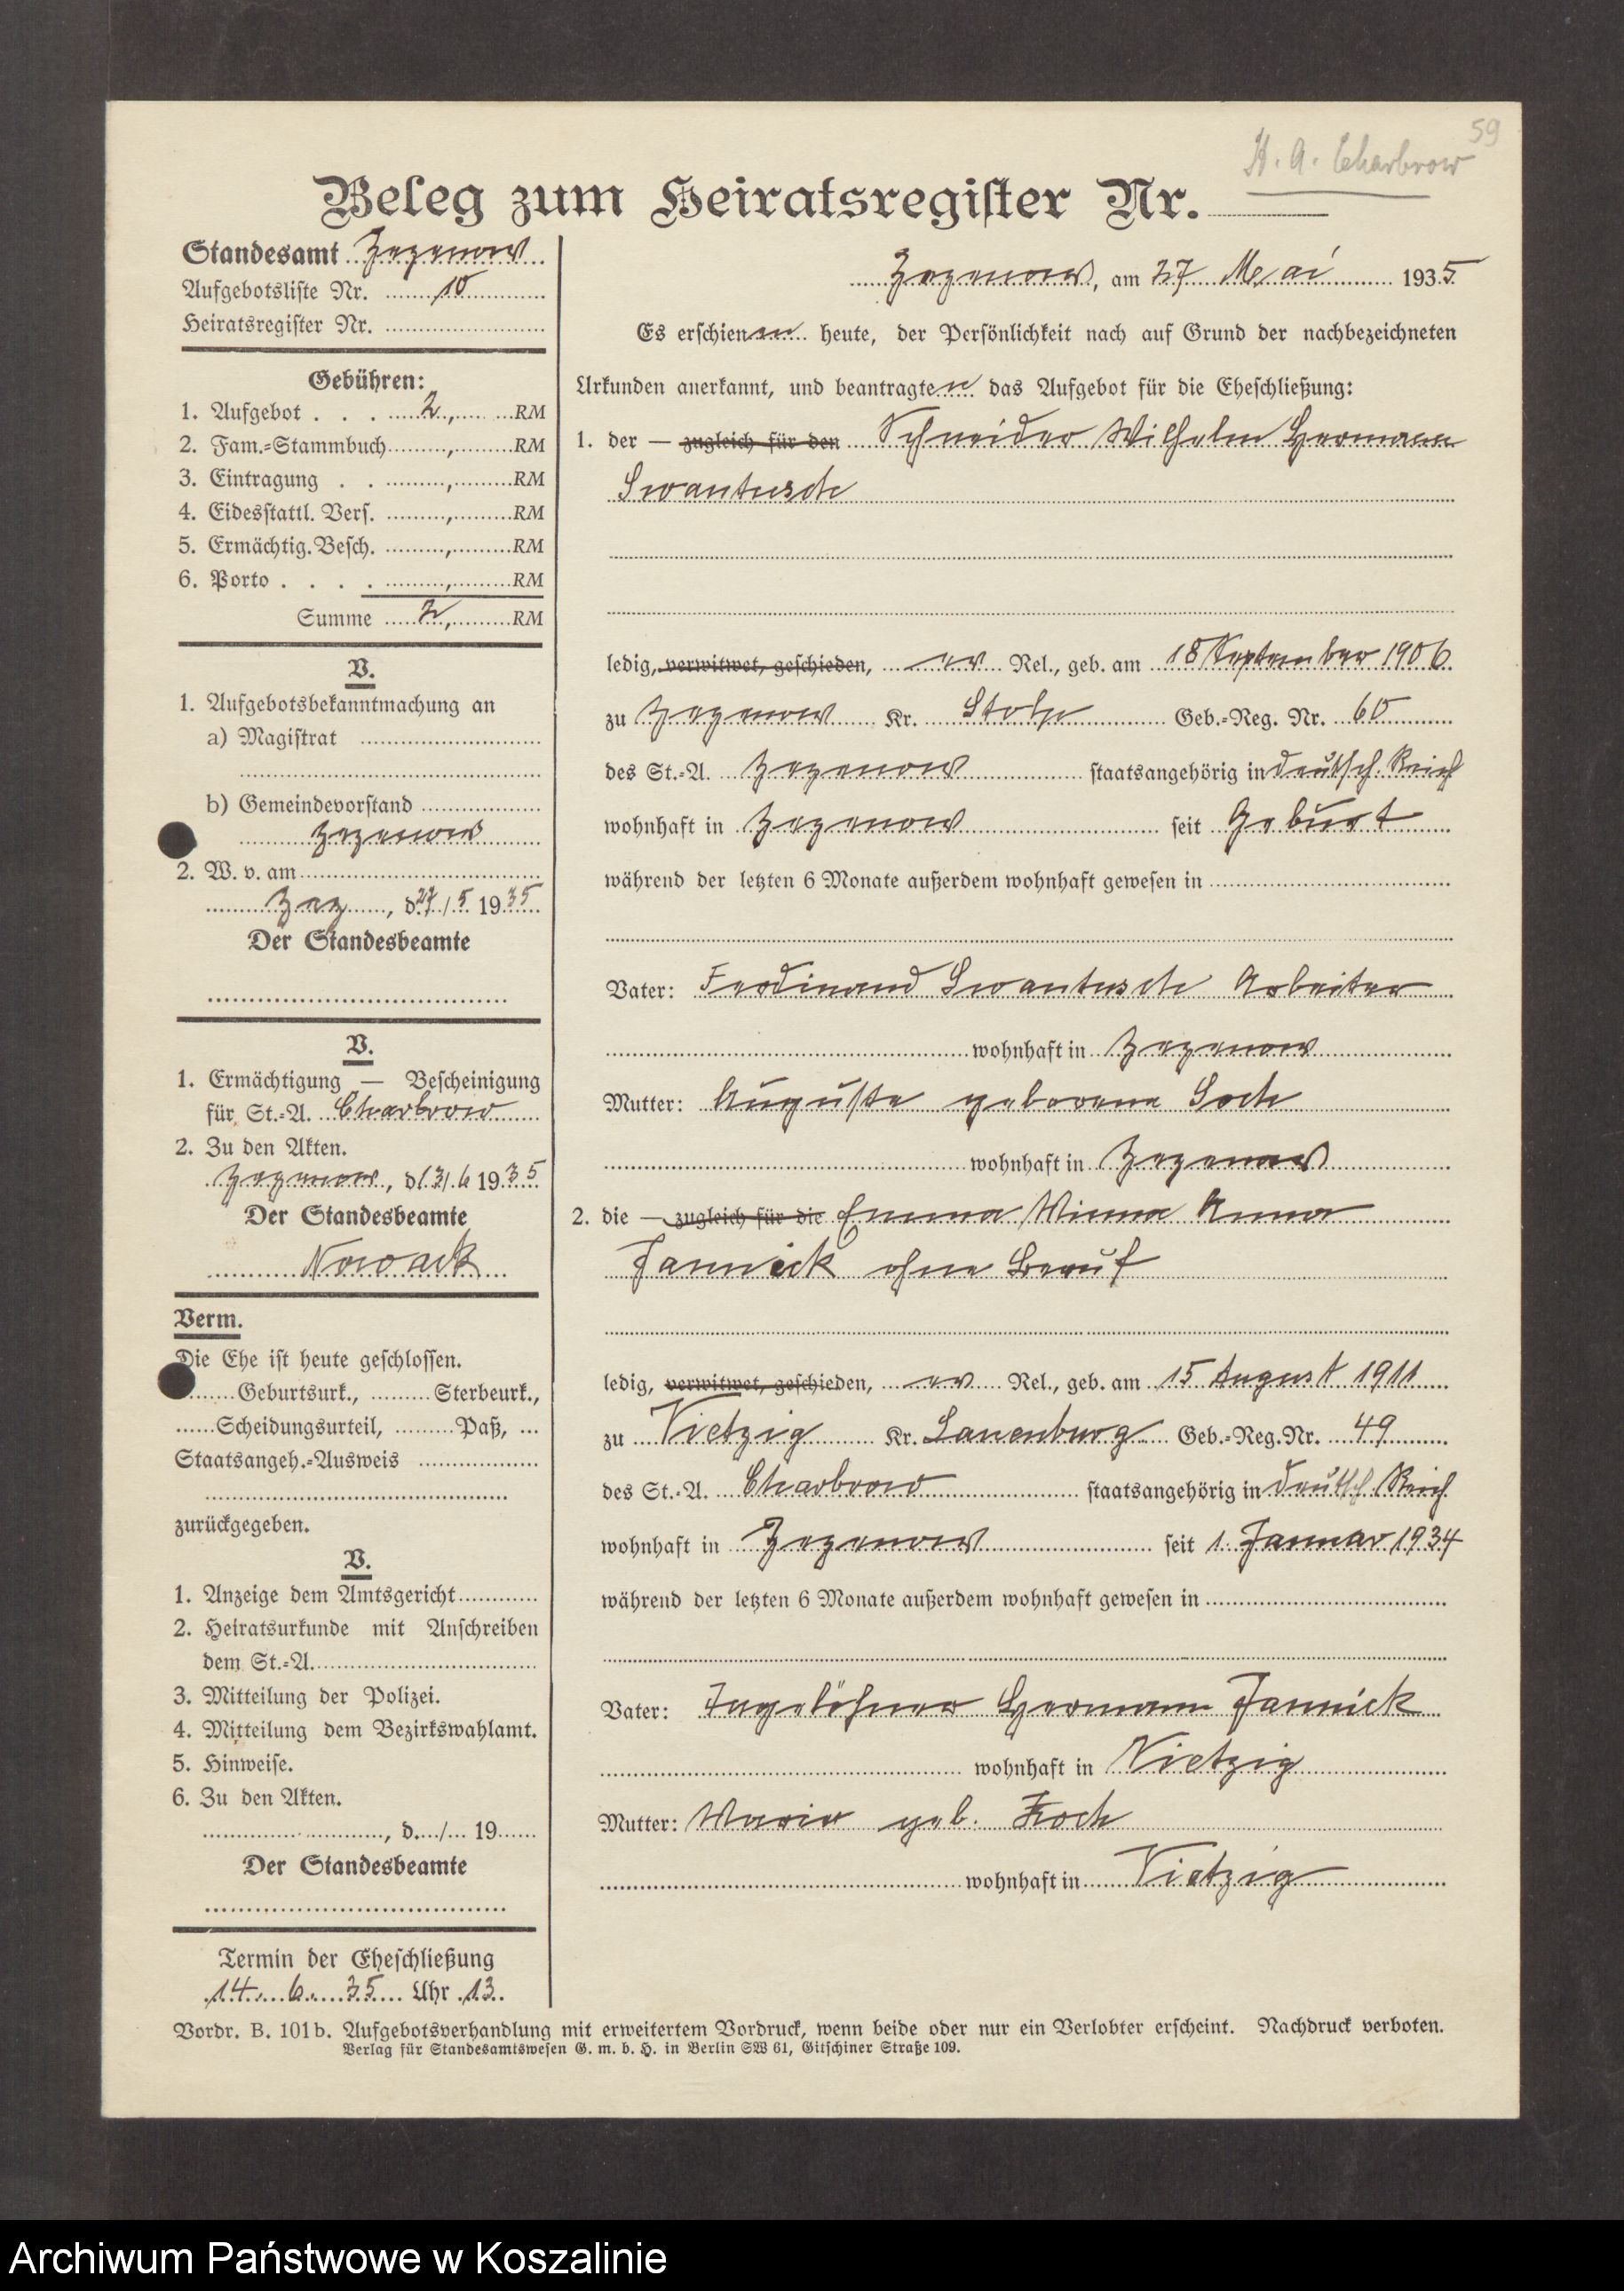 59
St. A. Charbrow
Beleg zum Heiratsregister Nr.
Standesamt Zezenow
Aufgebotsliste Nr. 10
Heiratsregister Nr.
Gebühren:
1. Aufgebot . . . 2, RM
2. Fam.=Stammbuch , RM
3. Eintragung . . , RM
4. Eidesstattl. Vers. , RM
5. Ermächtig. Besch. , RM
6. Porto . . . . , RM
Summe 2, RM
V.
1. Aufgebotsbekanntmachung an
a) Magistrat
b) Gemeindevorstand
Zezenow
2. W. v. am
Zez, d. 27/5 1935
Der Standesbeamte
V.
1. Ermächtigung — Bescheinigung
für St.=A. Charbrow
2. Zu den Akten.
Zezenow, d. 13/6 1935
Der Standesbeamte
Nowack
Verm.
Die Ehe ist heute geschlossen.
Geburtsurk., Sterbeurk.,
Scheidungsurteil, Paß,
Staatsangeh.=Ausweis
zurückgegeben.
V.
1. Anzeige dem Amtsgericht
2. Heiratsurkunde mit Anschreiben
dem St.=A.
3. Mitteilung der Polizei.
4. Mitteilung dem Bezirkswahlamt.
5. Hinweise.
6. Zu den Akten.
, d. / 19
Der Standesbeamte
Termin der Eheschließung
14. 6. 35 Uhr 13.
Zezenow, am 27 Mai 1935
Es erschienen heute, der Persönlichkeit nach auf Grund der nachbezeichneten
Urkunden anerkannt, und beantragten das Aufgebot für die Eheschließung:
1. der — zugleich für den Schneider Wilhelm Hermann
Swantusch
ledig, verwitwet, geschieden, ev Rel., geb. am 18 September 1906
zu Zezenow Kr. Stolp Geb.=Reg. Nr. 60
des St.=A. Zezenow staatsangehörig in deutsch. Reich
wohnhaft in Zezenow seit Geburt
während der letzten 6 Monate außerdem wohnhaft gewesen in
Vater: Ferdinand Swantusch Arbeiter
wohnhaft in Zezenow
Mutter: Auguste geborene Soch
wohnhaft in Zezenow
2. die — zugleich für die Emma Minna Anna
Jannick ohne Beruf
ledig, verwitwet, geschieden, ev Rel., geb. am 15 August 1911
zu Vietzig Kr. Lauenburg Geb.=Reg.Nr. 49
des St.=A. Charbrow staatsangehörig in deutsch Reich
wohnhaft in Zezenow seit 1. Januar 1934
während der letzten 6 Monate außerdem wohnhaft gewesen in
Vater: Tagelöhner Hermann Jannick
wohnhaft in Vietzig
Mutter: Marie geb. Koch
wohnhaft in Vietzig
Vordr. B. 101b. Aufgebotsverhandlung mit erweitertem Vordruck, wenn beide oder nur ein Verlobter erscheint. Nachdruck verboten.
Verlag für Standesamtswesen G. m. b. H. in Berlin SW 61, Gitschiner Straße 109.
Archiwum Państwowe w Koszalinie